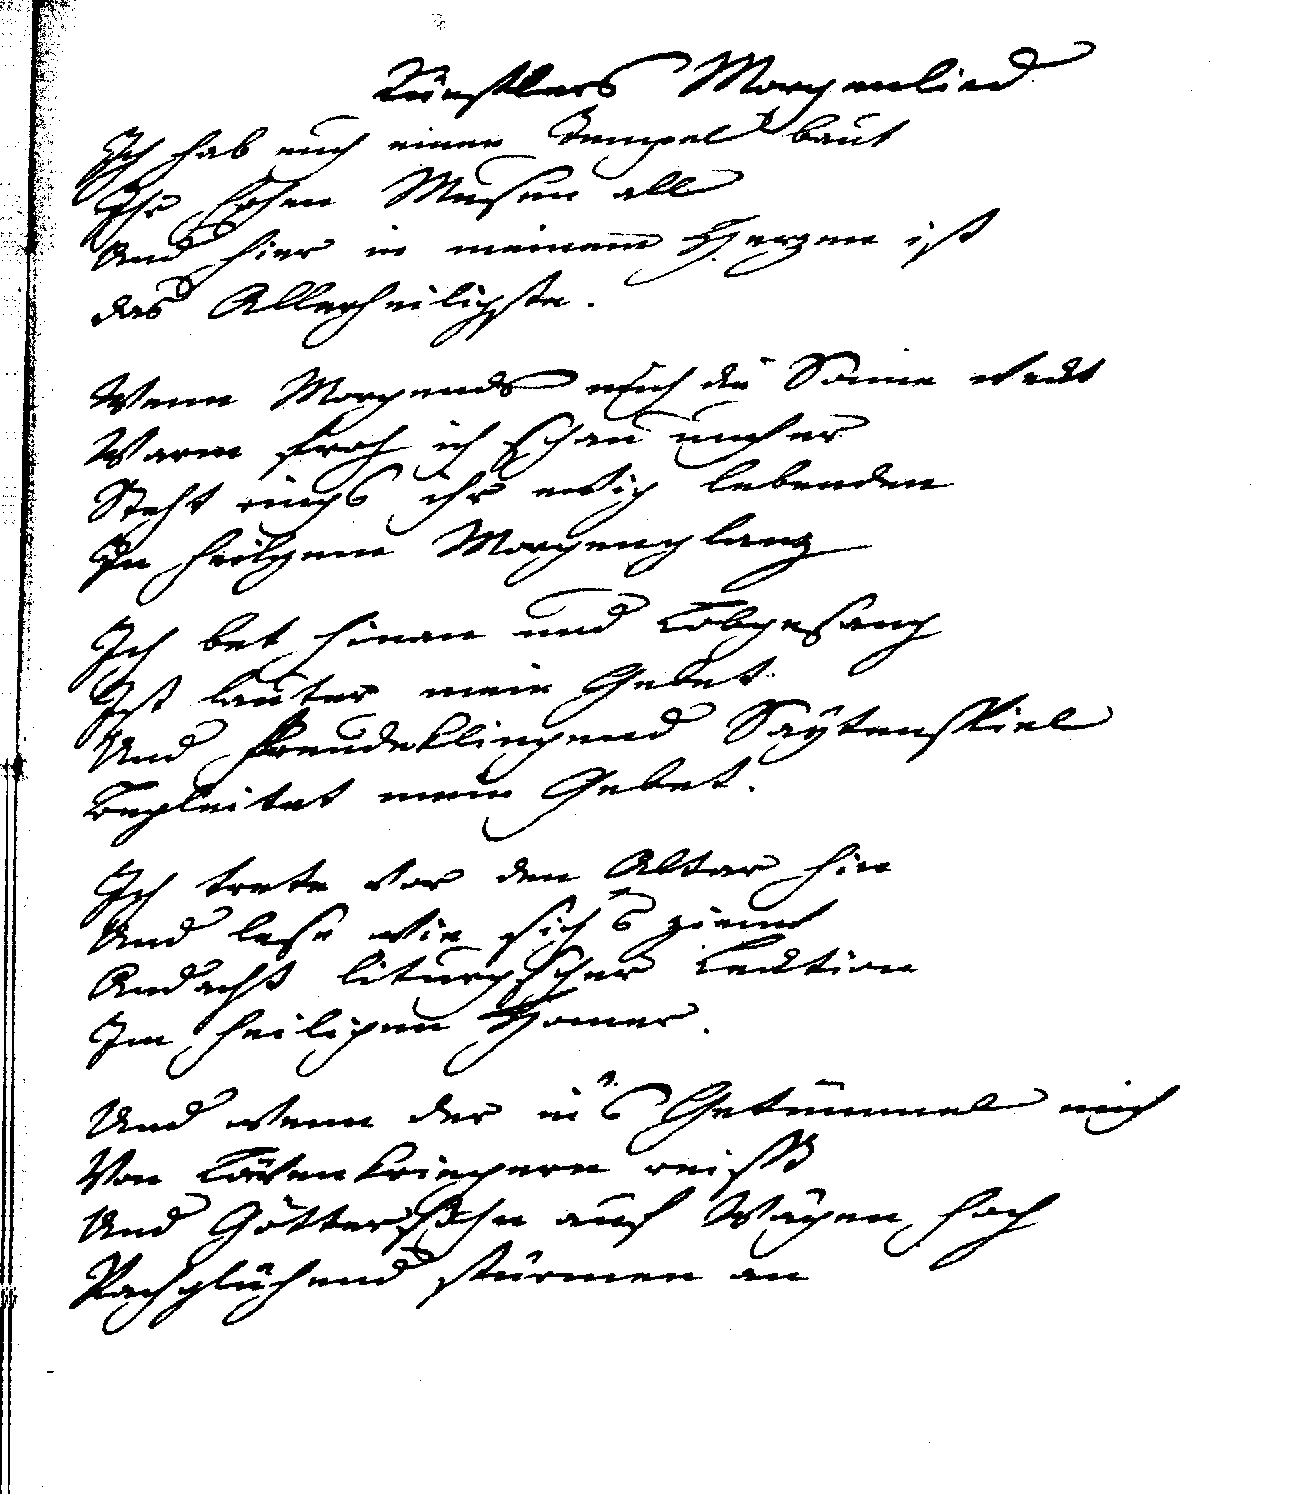 Künstlers Morgenlied
Ich hab euch einen Tempel baut
Ihr hohen Musen all
Und hier in meinem Herzen ist
das Allerheiligste.
Wenn Morgends mich die Sonne weckt
Warm froh ich schau umher
Steht rings ihr ewig lebenden
In heilgem Morgenglanz
Ich bet hinan und Lobgesang
Ist lauter mein Gebet
Und freudeklingend Saÿtenspiel
Begleitet mein Gebet.
Ich trete vor den Altar hin
Und lese wie sich's ziemt
Andacht liturgscher Lecktion
Im heiligen Homer.
Und wenn der in's Getümmel mich
Von Löwenkriegern reisst
Und Göttersöhn auf Wägen hoch
Rachglühend stürmen an